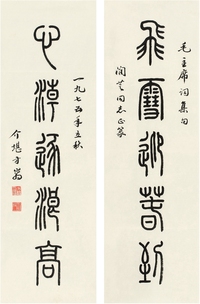 毛主席词集句
飛雪迎春到
同志正篆
心潮逐浪高
一九七五年立秋
介堪方岩